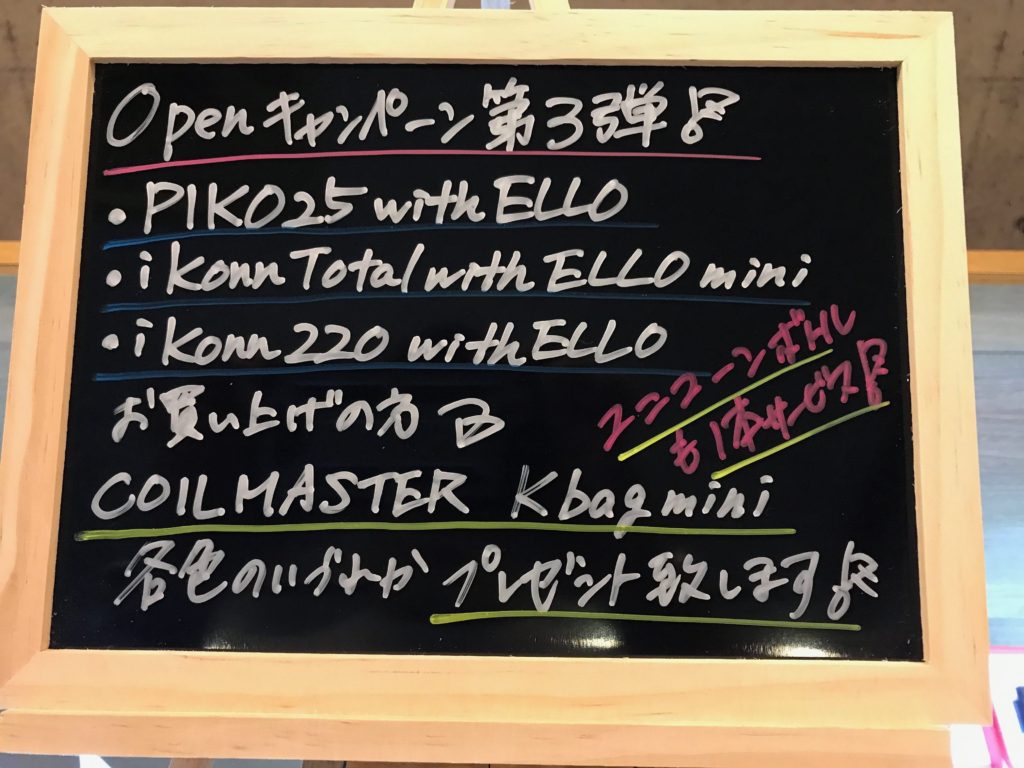 Openキャンペーン第3弾!!
・PIKO25 with ELLO
・iKonn Total with ELLO mini
・iKonn220 with ELLO
お買い上げの方に
ユニコーンボトル
も1本サービス!!
COILMASTER Kbag mini
各色のいづれか プレゼント致します!!